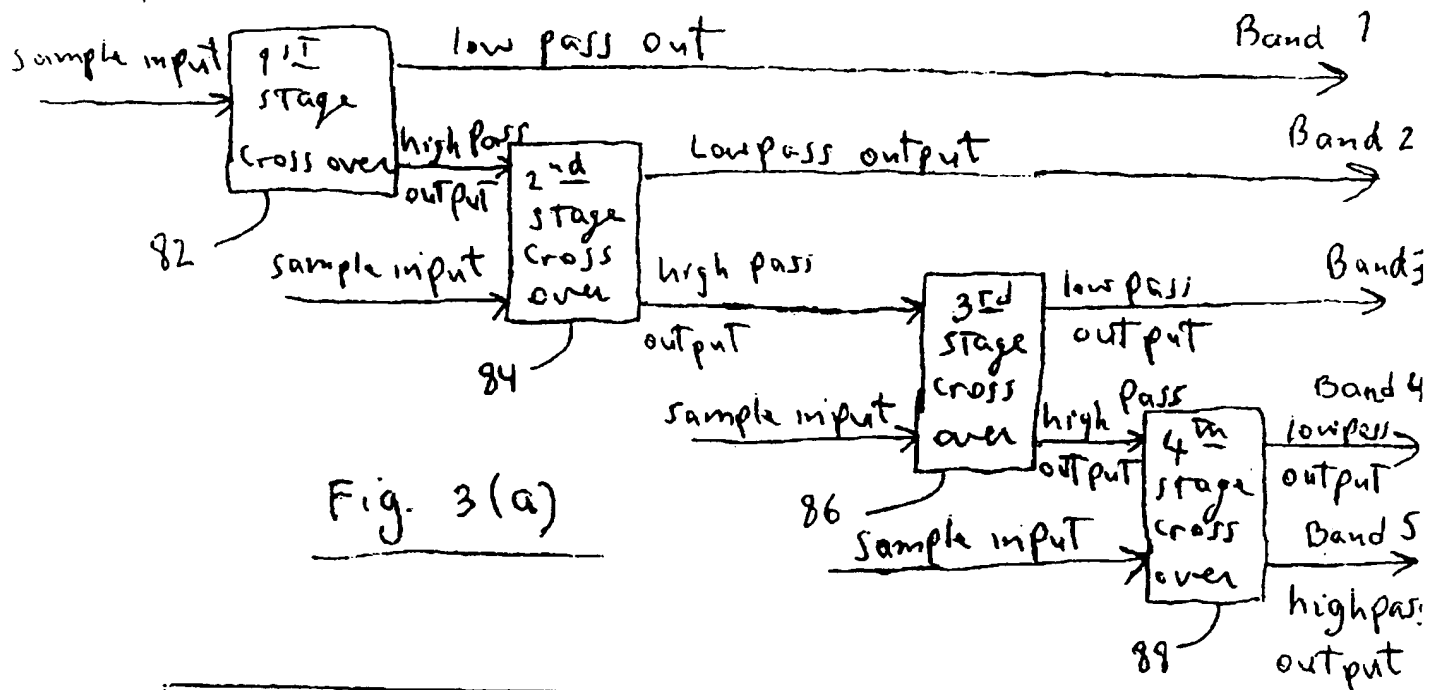 sample input
1st
stage
cross over
low pass out
Band 1
high Pass
output
82
2nd
stage
cross
over
Lowpass output
Band 2
sample input
84
high pass
output
3rd
stage
cross
over
low pass
output
Band 3
sample input
86
high Pass
output
4th
stage
cross
over
Band 4
lowpass
output
sample input
88
Band 5
highpass
output
Fig. 3(a)